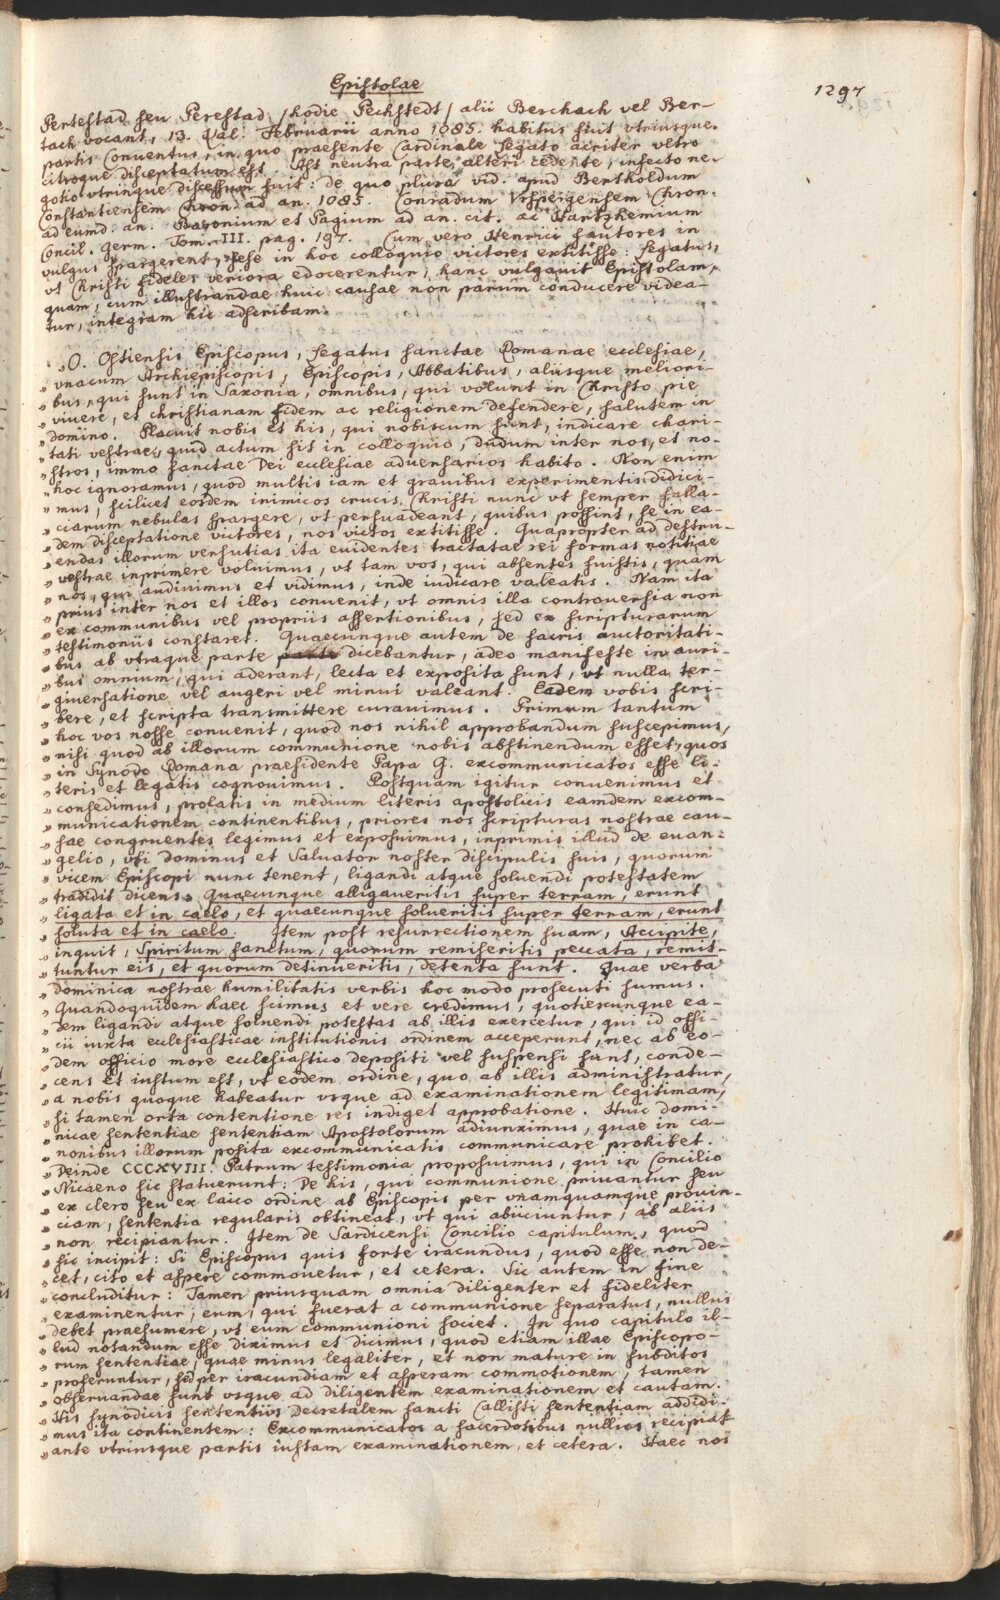 Epistolae
1297
Pertestad seu Perestad /hodie Pechstedt/ alii Berchach vel Ber-
tach vocant, 13. Qal. Februarii anno 1085. habitus fuit vtriusque
partis Conventus, in quo praesente Cardinale Legato acriter vltro
citroque disceptatum est. Ast neutra parte alteri cedente, infecto ne-
gotio vtrinque discessum fuit: de quo plura vid. apud Bertholdum
Constantiensem Chron. ad an. 1085. Conradum Vrspergensem Chron.
ad eumd. an. Baronium et Pagium ad an. cit. ac Hartzhemium
Concil. Germ. Tom. III. pag. 197. Cum vero Henrici fautores in
vulgus spargerent, sese in hoc colloquio victores extitisse: Legatus,
vt Christi fideles veriora edocerentur, hanc vulgauit Epistolam,
quam, cum illustrandae huic causae non parum conducere videa-
tur, integram hic adscribam.
„O. Ostiensis Episcopus, Legatus sanctae Romanae ecclesiae,
„ vnacum Archiepiscopis, Episcopis, Abbatibus, aliisque meliori-
„ bus, qui sunt in Saxonia, omnibus, qui volunt in Christo pie
„ viuere, et christianam fidem ac religionem defendere, salutem in
„ domino. Placuit nobis et his, qui nobiscum sunt, indicare chari-
„ tati vestrae, quid actum sit in colloquio, dudum inter nos, et no-
„ stros, immo sanctae Dei ecclesiae aduersarios habito. Non enim
„ hoc ignoramus, quod multis iam et grauibus experimentis didici-
„ mus, scilicet eosdem inimicos crucis Christi nunc vt semper falla-
„ ciarum nebulas spargere, vt persuadeant, quibus possint, se in ea-
„ dem disceptatione victores, nos victos extitisse. Quapropter ad destru-
„ endas illorum versutias ita euidentes tractatae rei formas notitiae
„ vestrae inprimere voluimus, vt tam vos, qui absentes fuistis, quam
„ nos, qui audiuimus et vidimus, inde iudicare valeatis. Nam ita
„ prius inter nos et illos conuenit, vt omnis illa controuersia non
„ ex communibus vel propriis assertionibus, sed ex scripturarum
„ testimoniis constaret. Quaecunque autem de sacris auctoritati-
„ bus ab vtraque parte dicebantur, adeo manifeste in auri-
„ bus omnium, qui aderant, lecta et exposita sunt, vt nulla ter-
„ giuersatione vel augeri vel minui valeant. Eadem vobis scri-
„ bere, et scripta transmittere curauimus. Primum tantum
„ hoc vos nosse conuenit, quod nos nihil approbandum suscepimus,
„ nisi quod ab illorum communione nobis abstinendum esset, quos
„ in Synodo Romana praesidente Papa G. excommunicatos esse li-
„ teris et legatis cognouimus. Postquam igitur conuenimus et
„ consedimus, prolatis in medium literis apostolicis eamdem excom-
„ municationem continentibus, priores nos scripturas nostrae cau-
„ sae congruentes legimus et exposuimus, inprimis illud de euan-
„ gelio, vbi dominus et Saluator noster discipulis suis, quorum
„ vicem Episcopi nunc tenent, ligandi atque soluendi potestatem
„ tradidit dicens: Quaecunque alligaueritis super terram, erunt
„ ligata et in caelo, et quaecunque solueritis super terram, erunt
„ soluta et in caelo. Item post resurrectionem suam, Accipite,
„ inquit, Spiritum sanctum, quorum remiseritis peccata, remit-
„ tuntur eis, et quorum detinueritis, detenta sunt. Quae verba
„ dominica nostrae humilitatis verbis hoc modo prosecuti sumus.
„ Quandoquidem haec scimus et vere credimus, quotiescunque ea-
„ dem ligandi atque soluendi potestas ab illis exercetur, qui id offi-
„ cii iuxta ecclesiasticae institutionis ordinem acceperunt, nec ab eo-
„ dem officio more ecclesiastico depositi vel suspensi sunt, conde-
„ cens et iustum est, vt eodem ordine, quo ab illis administratur,
„ a nobis quoque habeatur vsque ad examinationem legitimam,
„ si tamen orta contentione res indiget approbatione. Huic domi-
„ nicae sententiae sententiam Apostolorum adiunximus, quae in ca-
„ nonibus illorum posita excommunicatis communicare prohibet.
„ Deinde CCCXVIII. Patrum testimonia proposuimus, qui in Concilio
„ Nicaeno sic statuerunt: De his, qui communione priuantur seu
„ ex clero seu ex laico ordine ab Episcopis per vnamquamque prouin-
„ ciam, sententia regularis obtineat, vt qui abiiciuntur, ab aliis
„ non recipiantur. Item de Sardicensi Concilio capitulum, quod
„ sic incipit: Si Episcopus quis forte iracundus, quod esse non de-
„ cet, cito et aspere commouetur, et cetera. Sic autem in fine
„ concluditur: Tamen priusquam omnia diligenter et fideliter
„ examinentur, eum, qui fuerat a communione separatus, nullus
„ debet praesumere, vt eum communioni societ. In quo capitulo il-
„ lud notandum esse diximus et dicimus, quod etiam illae Episcopo-
„ rum sententiae, quae minus legaliter, et non mature in subditos
„ proferuntur, sed per iracundiam et asperam commotionem, tamen
„ obseruandae sunt vsque ad diligentem examinationem et cautam.
„ His synodicis sententiis Decretalem sancti Callisti sententiam addidi-
„ mus ita continentem: Excommunicatos a sacerdotibus nullus recipiat
„ ante vtriusque partis iustam examinationem, et cetera. Haec nos